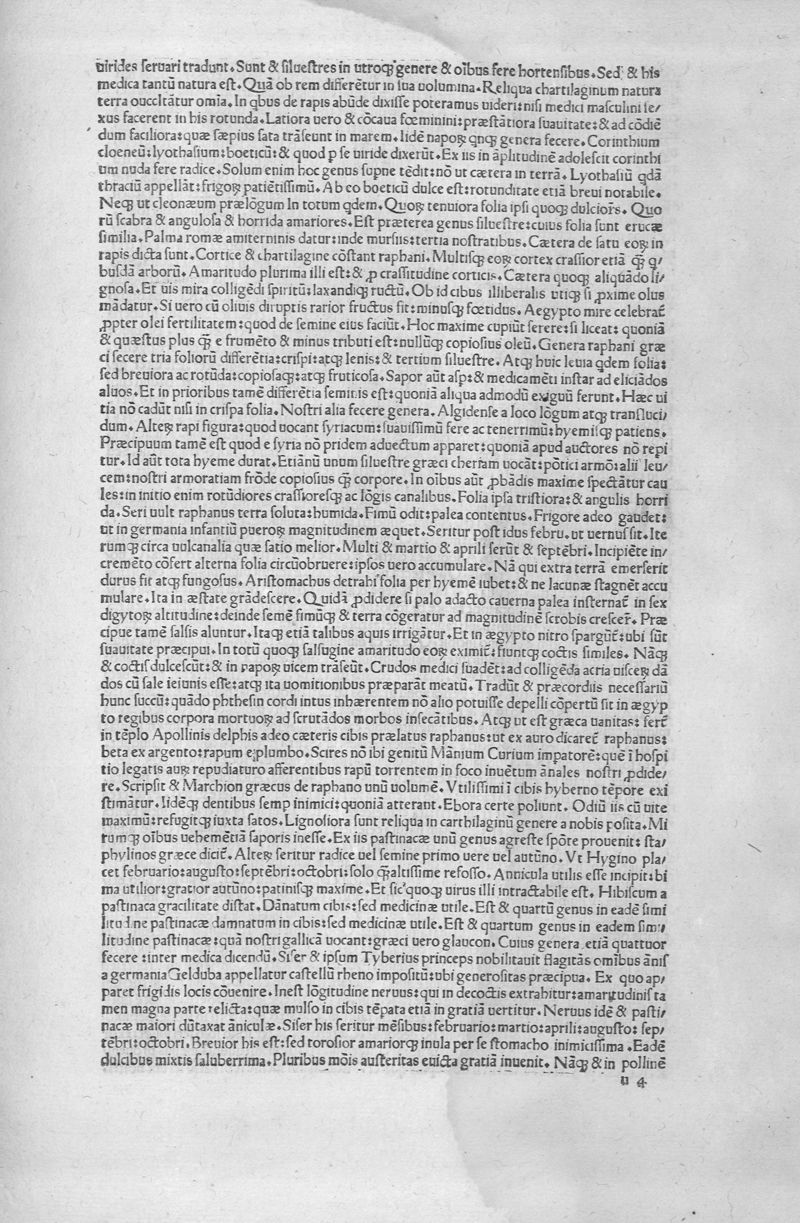 uirides seruari tradunt. Sunt & siluestres in utroq; genere & oībus fere hortensibus. Sed & his
medica tantū natura est. Quā ob rem differētur in sua uolumina. Reliqua chartilaginum natura
terra occultātur omīa. In qbus de rapis abūde dixisse poteramus uideri: nisi medici masculini se/
xus facerent in his rotunda. Latiora uero & cōcaua fœminini: præstātiora suauitate: & ad cōdiē
dum faciliora: quæ sæpius sata trāseunt in marem. Iidē napoꝝ qnq; genera fecere. Corinthium
cloeneū: lyothasium: boeticū: & quod p se uiride dixerūt. Ex iis in āplitudinē adolescit corinthi
um nuda fere radice. Solum enim hoc genus supne tēdit: nō ut cætera in terrā. Lyothasiū qdā
thraciū appellāt: frigoꝝ patiētissimū. Ab eo boeticū dulce est: rotunditate etiā breui notabile.
Neq; ut cleonæum prælōgum In totum qdem. Quoꝝ tenuiora folia ipsi quoq; dulciores. Quo
rū scabra & angulosa & horrida amariores. Est præterea genus siluestre: cuius folia sunt erucæ
similia. Palma romæ amiterninis datur: inde mursiis: tertia nostratibus. Cætera de satu eoꝝ in
rapis dicta sunt. Cortice & chartilagine cōstant raphani. Multisq; eoꝝ cortex crassior etiā q̄ q/
busdā arborū. Amaritudo plurima illi est: & ꝓ crassitudine corticis. Cætera quoq; aliquādo li/
gnosa. Et uis mira colligēdi spiritū: laxandiq; ructū. Ob id cibus illiberalis utiq; si ꝓxime olus
mādatur. Si uero cū oliuis diruptis rarior fructus fit: minusq; fœtidus. Aegypto mire celebrat̄
ꝓpter olei fertilitatem: quod de semine eius faciūt. Hoc maxime cupiūt serere: si liceat: quoniā
& quæstus plus q̄ e frumēto & minus tributi est: nullūq; copiosius oleū. Genera raphani græ
ci fecere tria foliorū differētia: crispi: atq; lenis: & tertium siluestre. Atq; huic leuia qdem folia:
sed breuiora ac rotūda: copiosaq;: atq; fruticosa. Sapor aūt aspt: & medicamēti instar ad eliciādos
aluos. Et in prioribus tamē differētia seminis est: quoniā aliqua admodū exiguū ferunt. Hæc ui
tia nō cadūt nisi in crispa folia. Nostri alia fecere genera. Algidense a loco lōgum atq; transluci/
dum. Alteꝝ rapi figura: quod uocant syriacum: suauissimū fere ac tenerrimū: hyemisq; patiens.
Præcipuum tamē est quod e syria nō pridem aduectum apparet: quoniā apud auctores nō repi
tur. Id aūt tota hyeme durat. Etiānū unum siluestre græci cheriam uocāt: pōtici armō: alii leu/
cem: nostri armoratiam frōde copiosius q̄ corpore. In oībus aūt ꝓbādis maxime spectātur cau
les: in initio enim rotūdiores crassioresq; ac lōgis canalibus. Folia ipsa tristiora: & angulis horri
da. Seri uult raphanus terra soluta: humida. Fimū odit: palea contentus. Frigore adeo gaudet:
ut in germania infantiū pueroꝝ magnitudinem æquet. Seritur post idus febru. ut uernus sit. Ite
rumq; circa uulcanalia quæ satio melior. Multi & martio & aprili serūt & septēbri. Incipiēte in/
cremēto cōfert alterna folia circūobruere: ipsos uero accumulare. Nā qui extra terrā emerserit
durus fit atq; fungosus. Aristomachus detrahi folia per hyemē iubet: & ne lacunæ stagnēt accu
mulare. Ita in æstate grādescere. Quidā ꝓdidere si palo adacto cauerna palea insternat̄ in sex
digytoꝝ altitudine: deinde semē fimūq; & terra cōgeratur ad magnitudinē scrobis crescere. Præ
cipue tamē salsis aluntur. Itaq; etiā talibus aquis irrigātur. Et in ægypto nitro spargūt̄: ubi sūt
suauitate præcipui. In totū quoq; salsugine amaritudo eoꝝ eximit̄: fiuntq; coctis similes. Nāq;
& cocti dulcescūt: & in rapoꝝ uicem trāseūt. Crudos medici suadēt: ad colligēda acria uisceꝝ dā
dos cū sale ieiunis esse: atq; ita uomitionibus præparāt meatū. Tradūt & præcordiis necessariū
hunc succū: quādo phthesin cordi intus inhærentem nō alio potuisse depelli cōpertū sit in ægyp
to regibus corpora mortuoꝝ ad scrutādos morbos insecātibus. Atq; ut est græca uanitas: fert̄
in tēplo Apollinis delphis adeo cæteris cibis prælatus raphanus: ut ex auro dicaret̄ raphanus:
beta ex argento: rapum e plumbo. Scires nō ibi genitū Mānium Curium impatorē: quē ī hospi
tio legatis auꝝ repudiaturo afferentibus rapū torrentem in foco inuētum ānales nostri ꝓdide/
re. Scripsit & Marchion græcus de raphano unū uolumē. Vtilissimi ī cibis hyberno tēpore exi
stimātur. Iidēq; dentibus semp inimici: quoniā atterant. Ebora certe poliunt. Odiū iis cū uite
maximū: refugitq; iuxta satos. Lignosiora sunt reliqua in carthilaginū genere a nobis posita. Mi
rumq; oībus uehemētiā saporis inesse. Ex iis pastinacæ unū genus agreste spōte prouenit: sta/
phylinos græce dicit̄. Alteꝝ seritur radice uel semine primo uere uel autūno. Vt Hygino pla/
cet februario: augusto: septēbri: octobri: solo q̄altissime refosso. Annicula utilis esse incipit: bi
ma utilior: gratior autūno: patinisq; maxime. Et sic quoq; uirus illi intractabile est. Hibiscum a
pastinaca gracilitate distat. Dānatum cibis: sed medicinæ utile. Est & quartū genus in eadē simi
litudine pastinacæ damnatum in cibis: sed medicinæ utile. Est & quartum genus in eadem simi/
litudine pastinacæ: quā nostri gallicā uocant: græci uero glaucon. Cuius genera etiā quattuor
fecere: inter medica dicendū. Siser & ipsum Tyberius princeps nobilitauit flagitās omībus ānis
a germania Gelduba appellatur castellū rheno impositū: ubi generositas præcipua. Ex quo ap/
paret frigidis locis cōuenire. Inest lōgitudine neruus: qui in decoctis extrahitur: amaritudinis ta
men magna parte relicta: quæ mulso in cibis tēpata etiā in gratiā uertitur. Neruus idē & pasti/
nacæ maiori dūtaxat āniculæ. Siser his seritur mēsibus: februario: martio: aprili: augusto: sep/
tēbri: octobri. Breuior his est: sed torosior amariorq; inula per se stomacho inimicissima. Eadē
dulcibus mixtis saluberrima. Pluribus mōis austeritas euicta gratiā inuenit. Nāq; & in pollinē
u 4